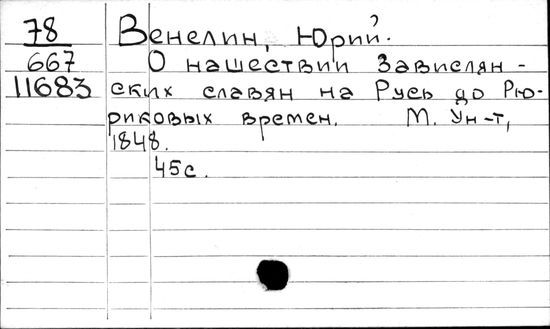 78 Венелин, Юрий.
667 О нашествии Завислян-
11683 ских славян на Русь до Рю-
риковых времен. М. Ун-т,
1848.
45с.